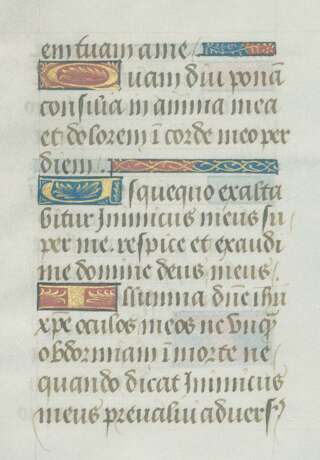 em tuam a me
Quam diu ponā
consilia in anima mea
et dolorem ī corde meo per
diem.
Vsquequo exalta
bitur Inimicus meus su
per me. respice et exaudi
me domine deus meus.
Illumina dn̄e ihū
xp̄e oculos meos ne vnq̄
obdormiam ī morte ne
quando dicat Inimicus
meus preualui aduersꝰ